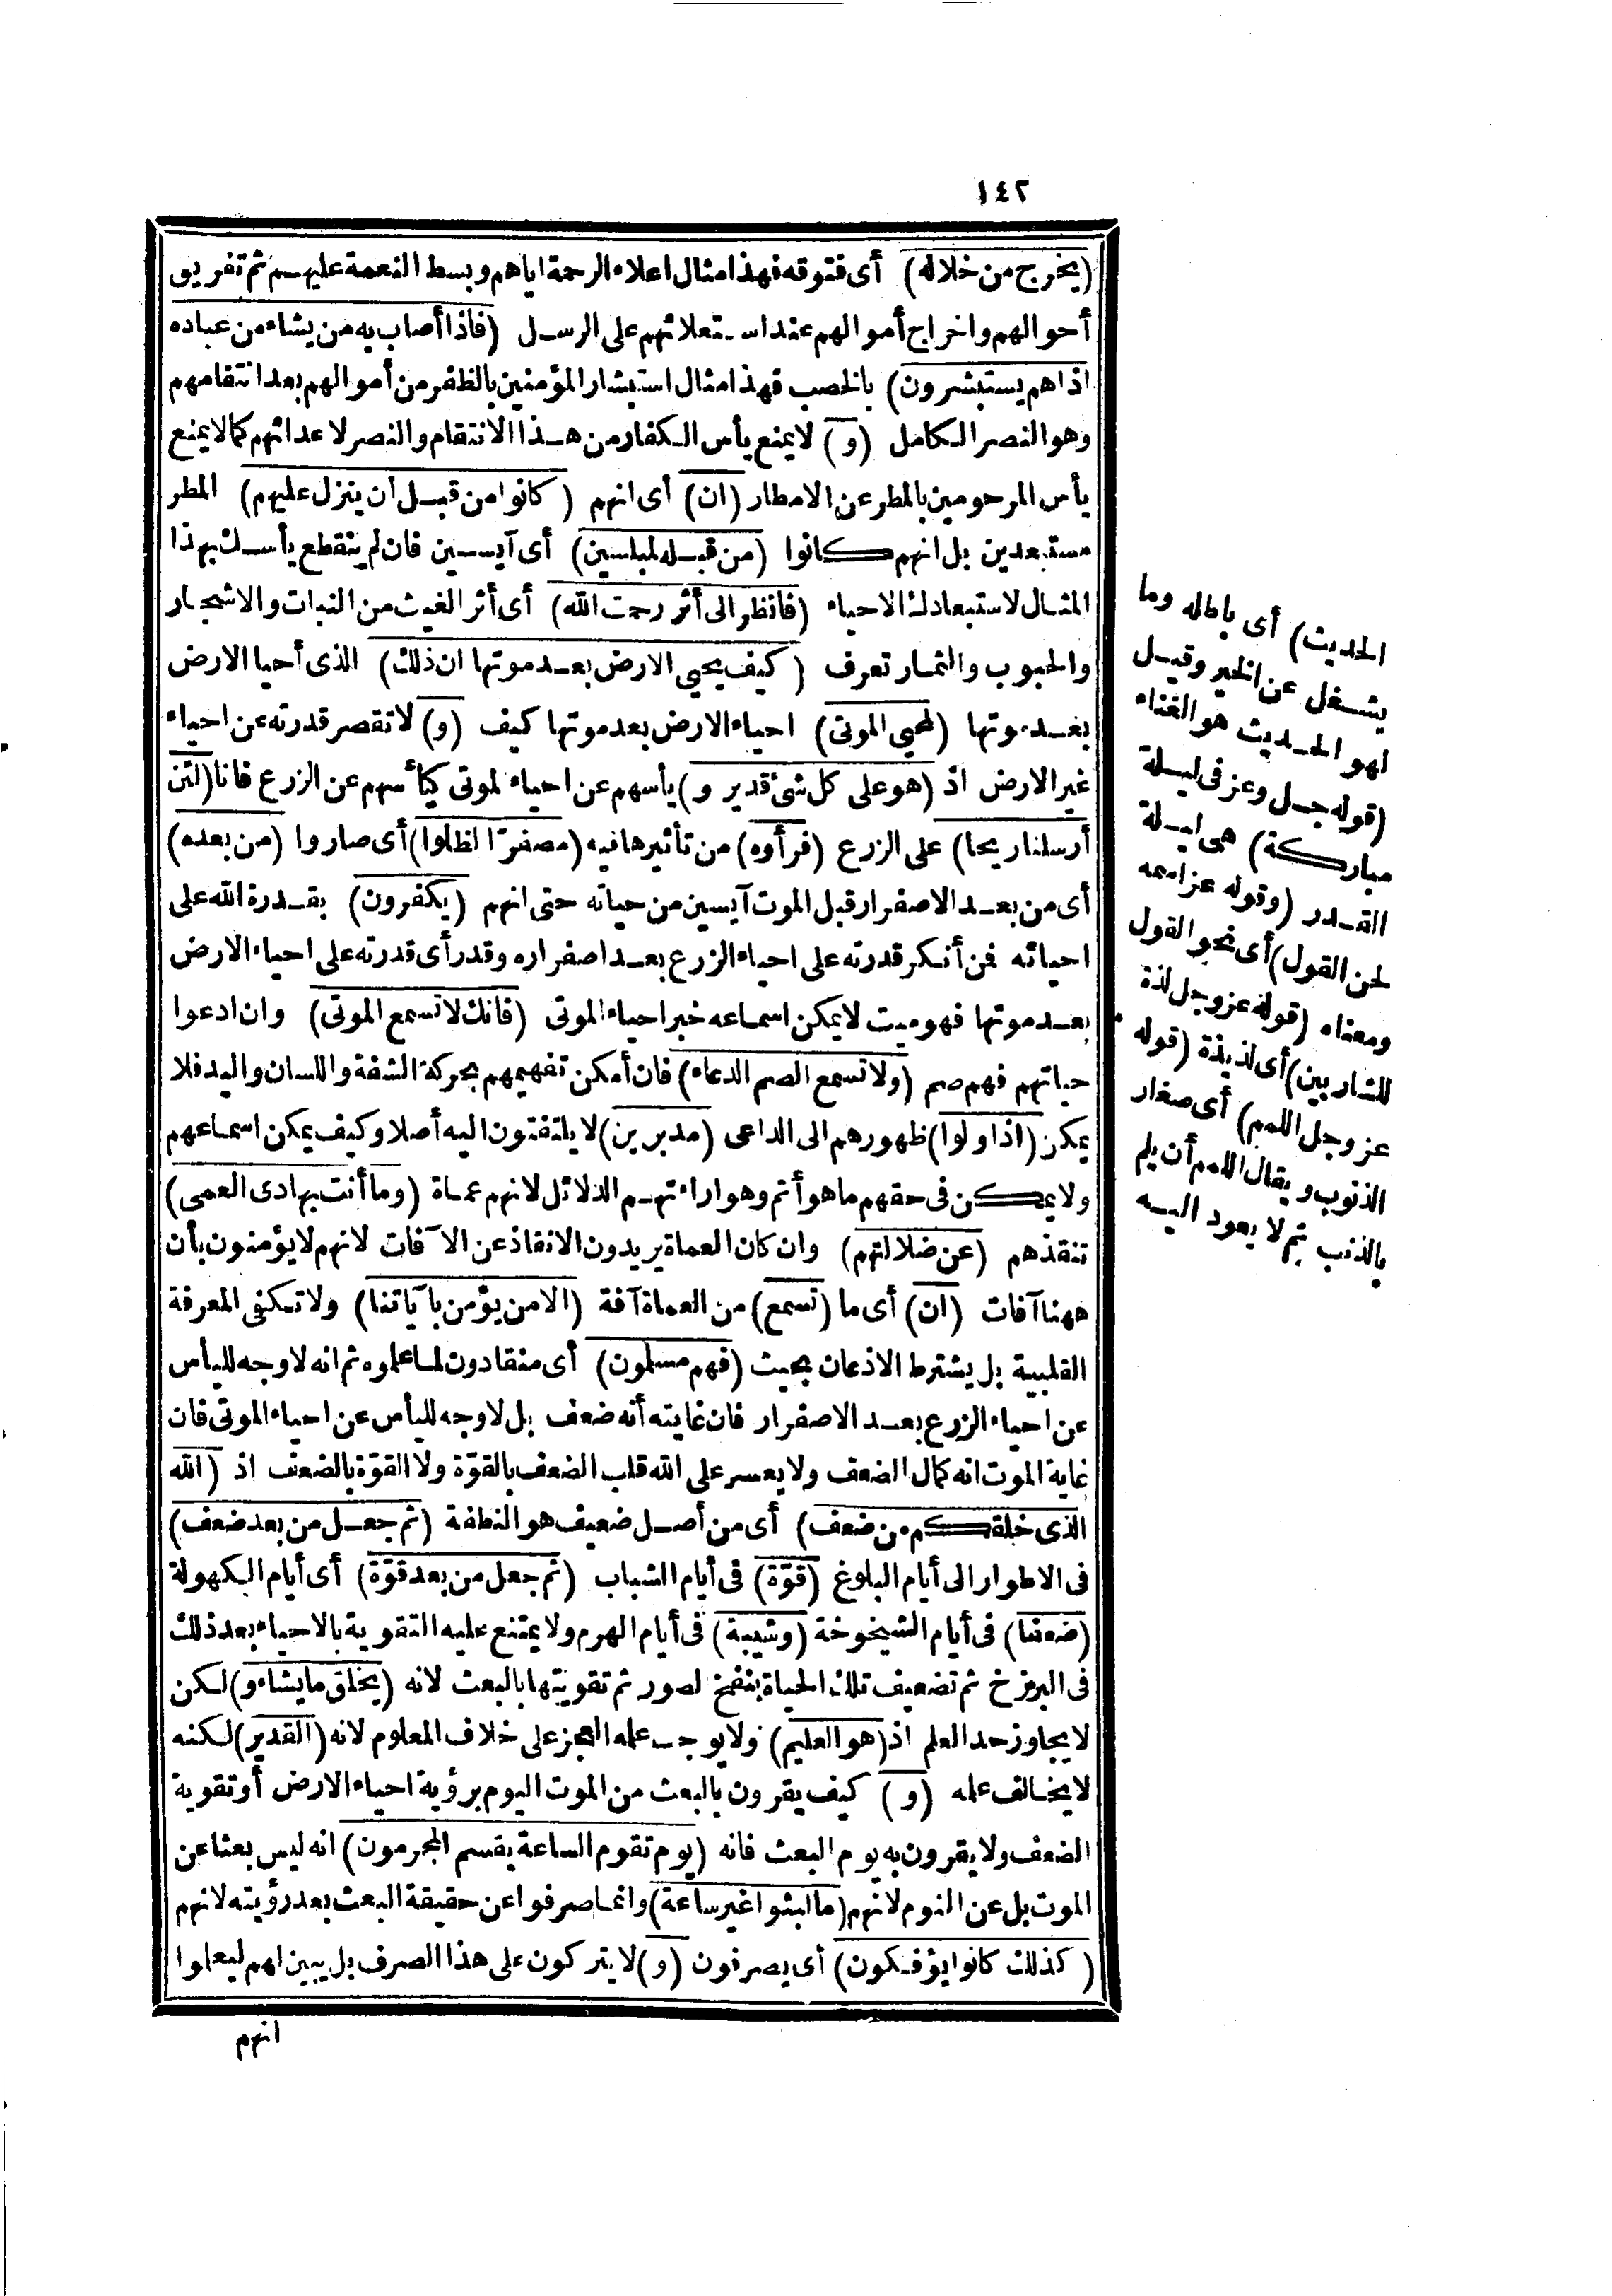 ١٤٢
(يخرج من خلاله) أى فتوقه فهذا مثال اعلاء الرحمة اياهم وبسط النعمة عليهم ثم تفريق
أحوالهم واخراج أموالهم عند استعلائهم على الرسل (فاذا أصاب به من يشاء من عباده
اذا هم يستبشرون) بالخصب فهذا مثال استبشار المؤمنين بالظفر من أموالهم بعد انتقامهم
وهو النصر الكامل (و) لا يمنع يأس الكفار من هذا الانتقام والنصر لاعدائهم كما لا يمنع
يأس المرحومين بالمطر عن الامطار (ان) أى انهم (كانوا من قبل أن ينزل عليهم) المطر
مستبعدين بل انهم كانوا (من قبله لمبلسين) أى آيسين فان لم ينقطع يأسك بهذا
المثال لاستبعادك الاحياء (فانظر الى أثر رحمت الله) أى أثر الغيث من النبات والاشجار
والحبوب والثمار تعرف (كيف يحيي الارض بعد موتها ان ذلك) الذى أحيا الارض
بعد موتها (لمحيي الموتى) احياء الارض بعد موتها كيف (و) لا تقصر قدرته عن احياء
غير الارض اذ (هو على كل شئ قدير و) يأسهم عن احياء لموتى كيأسهم عن الزرع فانا (لئن
أرسلنا ريحا) على الزرع (فرأوه) من تأثيرها فيه (مصفرّا لظلوا) أى صاروا (من بعده)
أى من بعد الاصفرار قبل الموت آيسين من حياته حتى انهم (يكفرون) بقدرة الله على
احيائه فمن أنكر قدرته على احياء الزرع بعد اصفراره وقد رأى قدرته على احياء الارض
بعد موتها فهو ميت لا يمكن اسماعه خبر احياء الموتى (فانك لا تسمع الموتى) وان ادعوا
حياتهم فهم صم (ولا تسمع الصم الدعاء) فان أمكن تفهيمهم بحركة الشفة واللسان واليد فلا
يمكن (اذا ولوا) ظهورهم الى الداعى (مدبرين) لا يلتفتون اليه أصلا وكيف يمكن اسماعهم
ولا يمكن فى حقهم ما هو أتم وهو اراءتهم الدلائل لانهم عماة (وما أنت بهادى العمى)
تنقذهم (عن ضلالتهم) وان كان العماة يريدون الانقاذ عن الآفات لانهم لا يؤمنون بأن
ههنا آفات (ان) أى ما (تسمع) من العماة آفة (الا من يؤمن بآياتنا) ولا تكفى المعرفة
القلبية بل يشترط الاذعان بحيث (فهم مسلمون) أى منقادون لما علموه ثم انه لا وجه لليأس
عن احياء الزرع بعد الاصفرار فان غايته أنه ضعف بل لا وجه لليأس عن احياء الموتى فان
غاية الموت انه كمال الضعف ولا يعسر على الله قلب الضعف بالقوّة ولا القوّة بالضعف اذ (الله
الذى خلقكم من ضعف) أى من أصل ضعيف هو النطفة (ثم جعل من بعد ضعف)
فى الاطوار الى أيام البلوغ (قوّة) فى أيام الشباب (ثم جعل من بعد قوّة) أى أيام الكهولة
(ضعفا) فى أيام الشيخوخة (وشيبة) فى أيام الهرم ولا يمتنع عليه التقوية بالاحياء بعد ذلك
فى البرزخ ثم تضعيف تلك الحياة بنفخ لصور ثم تقويتها بالبعث لانه (يخلق ما يشاء و) لكن
لا يجاوز حد العلم اذ (هو العليم) ولا يوجب علمه العجز على خلاف المعلوم لانه (القدير) لكنه
لا يخالف علمه (و) كيف يقرون بالبعث من الموت اليوم برؤية احياء الارض أو تقوية
الضعف ولا يقرون به يوم البعث فانه (يوم تقوم الساعة يقسم المجرمون) انه ليس بعثا عن
الموت بل عن النوم لانهم (ما لبثوا غير ساعة) وانما صرفوا عن حقيقة البعث بعد رؤيته لانهم
(كذلك كانوا يؤفكون) أى يصرفون (و) لا يتركون على هذا الصرف بل يبين لهم ليعلموا
انهم
الحديث) أى باطله وما
يشغل عن الخير وقيل
لهو الحديث هو الغناء
(قوله جل وعز فى ليلة
مباركة) هى ليلة
القدر (وقوله عز اسمه
لحن القول) أى نحو القول
ومعناه (قوله عز وجل لذة
للشاربين) أى لذيذة (قوله
عز وجل اللمم) أى صغار
الذنوب ويقال اللمم أن يلم
بالذنب ثم لا يعود اليه